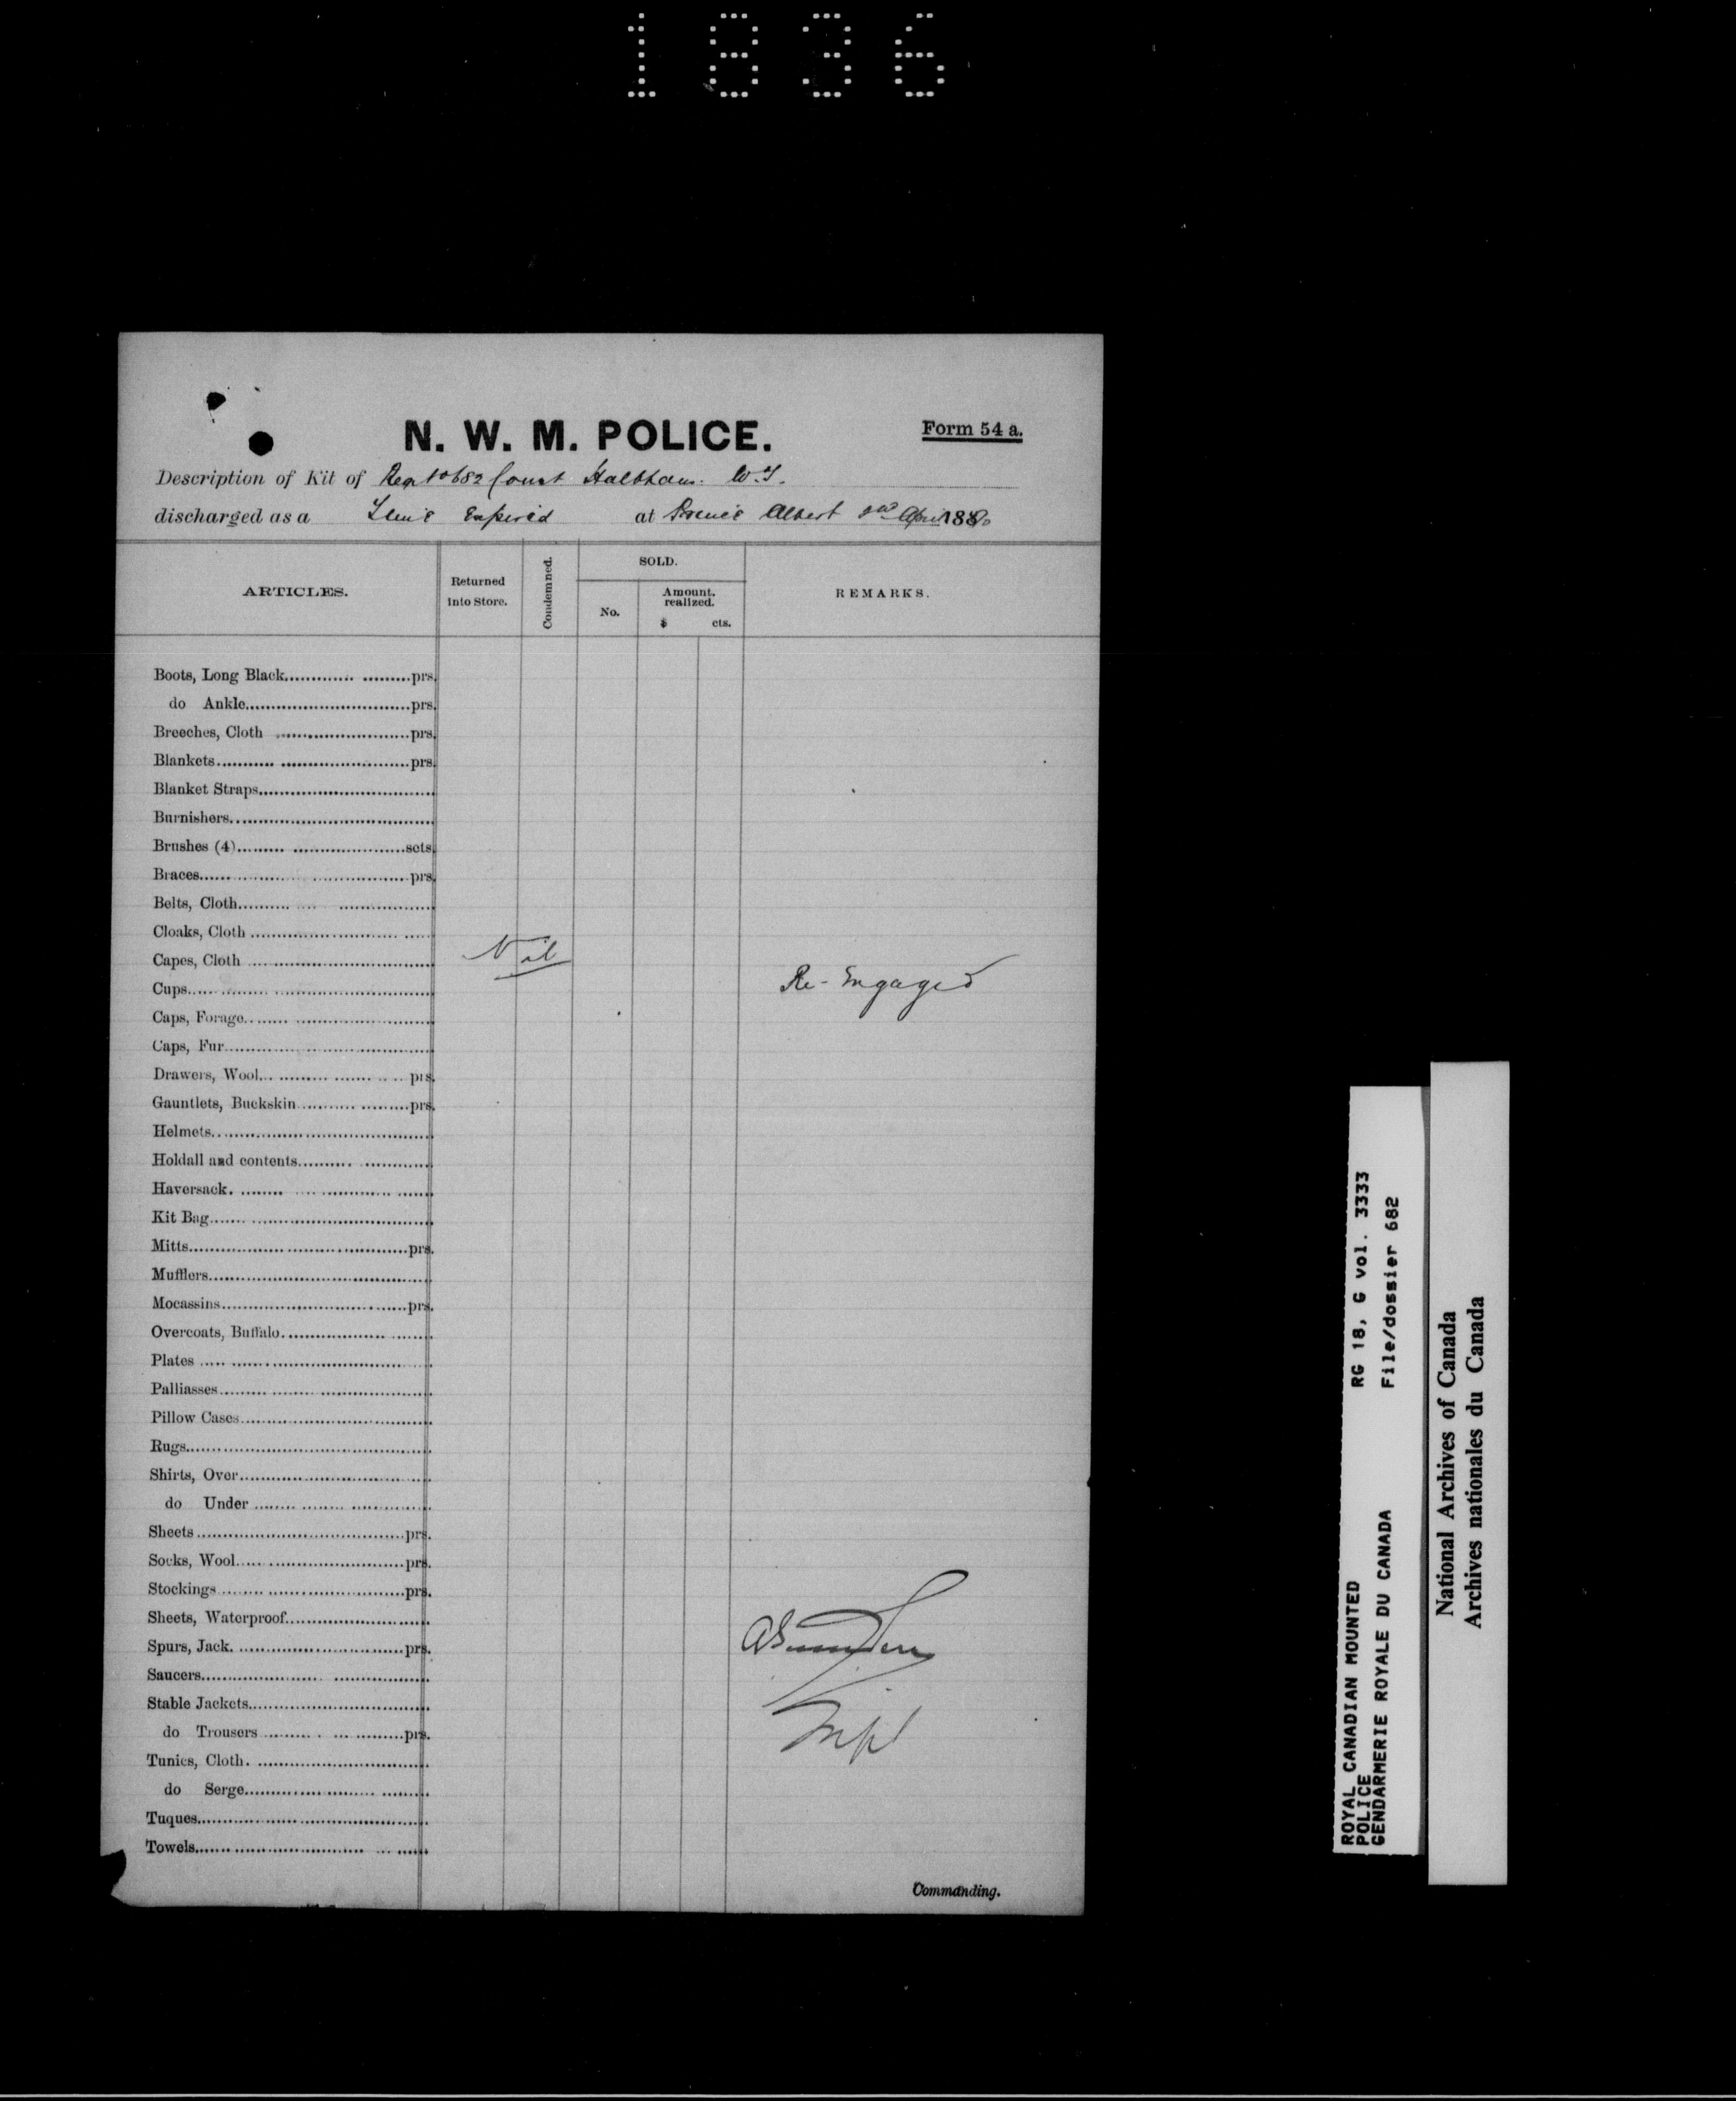 1836
N. W. M. POLICE.
Form 54 a.
Description of Kit of Reg No 682 Const Halbhaus. W. T.
discharged as a Time Expired at Prince Albert April 188
ARTICLES.
Returned into Store.
Condemned.
SOLD.
No.
Amount. realized.
$ cts.
REMARKS.
Boots, Long Black.....prs.
do Ankle.....prs.
Breeches, Cloth.....prs.
Blankets.....prs.
Blanket Straps.....
Burnishers.....
Brushes (4).....sets.
Braces.....prs.
Belts, Cloth.....
Cloaks, Cloth.....
Capes, Cloth.....
Nil
Cups.....
Re-Engaged
Caps, Forage.....
Caps, Fur.....
Drawers, Wool.....prs.
Gauntlets, Buckskin.....prs.
Helmets.....
Holdall and contents.....
Haversack.....
Kit Bag.....
Mitts.....prs.
Mufflers.....
Mocassins.....prs.
Overcoats, Buffalo.....
Plates.....
Palliasses.....
Pillow Cases.....
Rugs.....
Shirts, Over.....
do Under.....
Sheets.....prs.
Socks, Wool.....prs.
Stockings.....prs.
Sheets, Waterproof.....
Spurs, Jack.....prs.
Saucers.....
Stable Jackets.....
do Trousers.....prs.
Tunics, Cloth.....
do Serge.....
Tuques.....
Towels.....
Commanding.
ROYAL CANADIAN MOUNTED
POLICE
GENDARMERIE ROYALE DU CANADA
RG 18, G vol. 3333
File/dossier 682
National Archives of Canada
Archives nationales du Canada